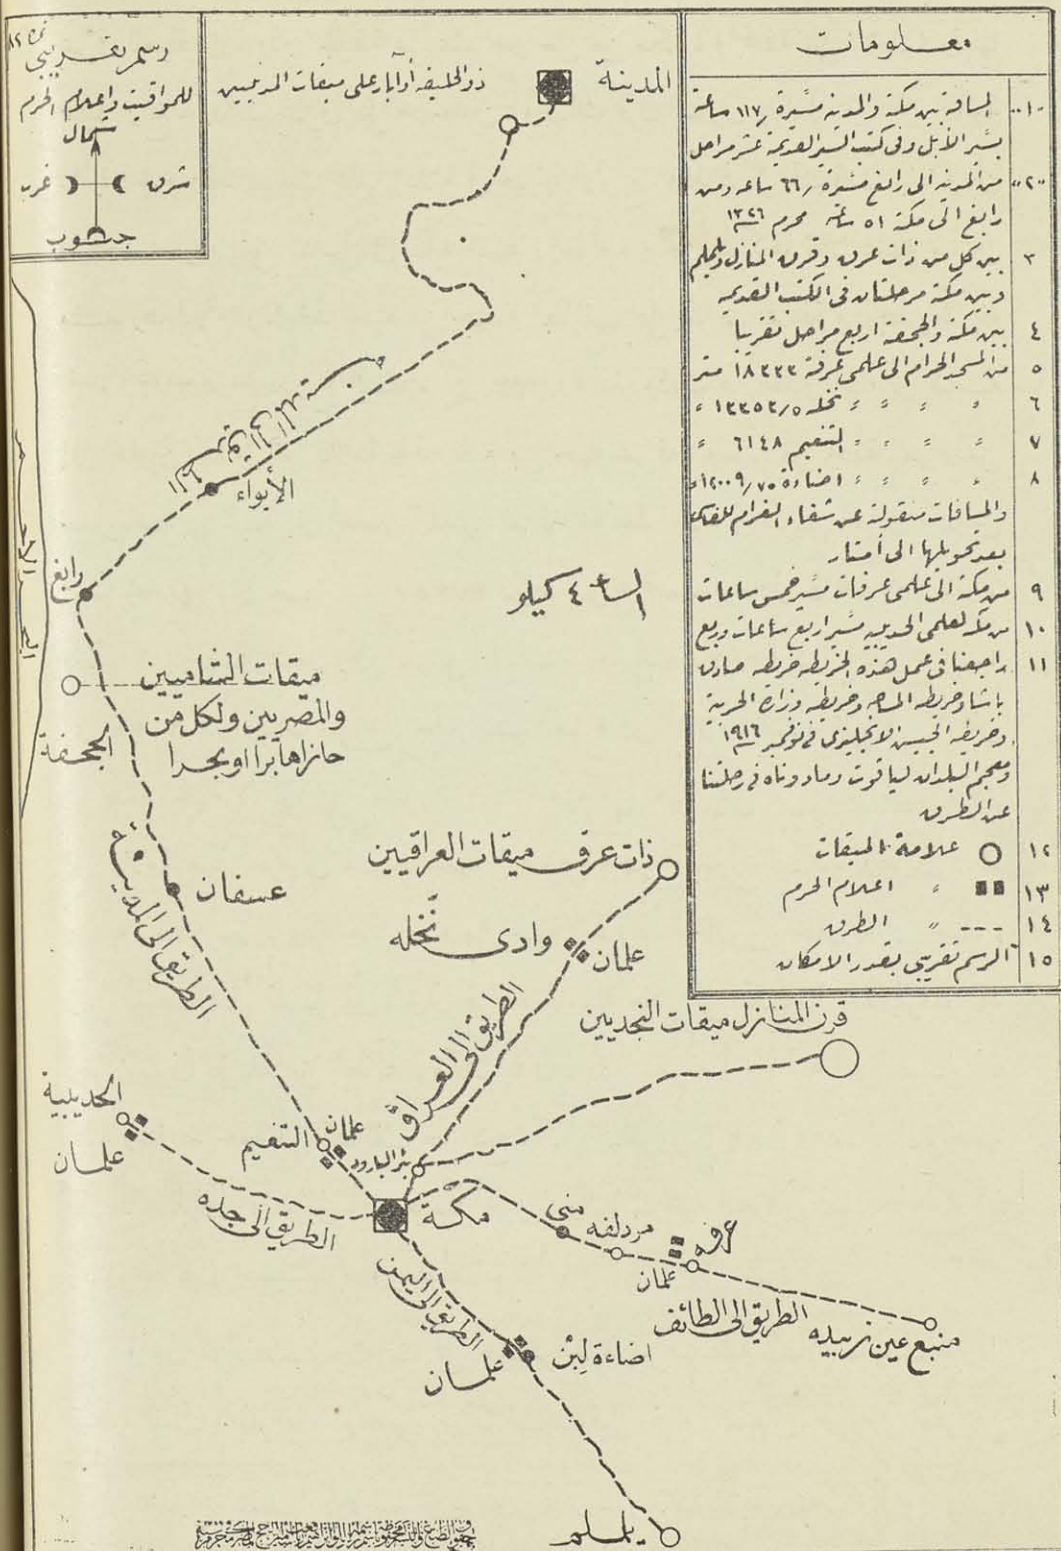 معلومات
١ المسافة بين مكة والمدينة مسيرة ١١٧ ساعة
بسير الأبل وفى كتب السير القديمة عشر مراحل
٢ من المدينة الى رابغ مسيرة ٦٦ ساعه ومن
رابغ الى مكة ٥١ ساعة محرم ١٣٢٦
٣ بين كل من ذات عرق وقرن المنازل ويلملم
وبين مكة مرحلتان فى الكتب القديمه
٤ بين مكة والجحفة اربع مراحل تقريبا
٥ من المسجد الحرام الى علمى عرفة ١٨٣٣٣ متر
٦ " " " " نخله ١٣٣٥٣٫٥ "
٧ " " " " التنعيم ٦١٤٨ "
٨ " " " " اضاءة ١٢٠٠٩٫٧٥ "
والمسافات منقولة عن شفاء الغرام للفاسى
بعد تحويلها الى أمتار
٩ من مكة الى علمى عرفات مسير خمس ساعات
١٠ من مكة لعلمى الحديبيه مسير اربع ساعات وربع
١١ راجعنا فى عمل هذه الخريطه خريطه صادق
باشا وخريطه المساحه وخريطه وزارة الحربية
وخريطه الجيس الانجليزى فى نوفمبر ١٩١٦
ومعجم البلدان لياقوت وما دوناه فى رحلتنا
عن الطرق
١٢ علامة الميقات
١٣ " اعلام الحرم
١٤ " الطرق
١٥ الرسم تقريبى بقدر الامكان
رسم تقريبى
للمواقيت واعلام الحرم
شمال
شرق
غرب
جنوب
المدينة
ذو الحليفه أو آبار على ميقات المدنيين
الأبواء
البحر الأحمر
رابغ
الساعة ٤ كيلو
ميقات الشاميين
والمصريين ولكل من
حازاها برا او بحرا
الجحفة
عسفان
الطريق الى المدينة
ذات عرق ميقات العراقيين
وادى نخله
علمان
الطريق الى العراق
قرن المنازل ميقات النجديين
الحديبية
علمان
علمان
التنعيم
بئر البارود
الطريق الى جده
مكة
منى
مزدلفه
عرفه
علمان
الطريق الى الطائف
منبع عين زبيده
الطريق الى اليمن
علمان
اضاءة لبن
يلملم